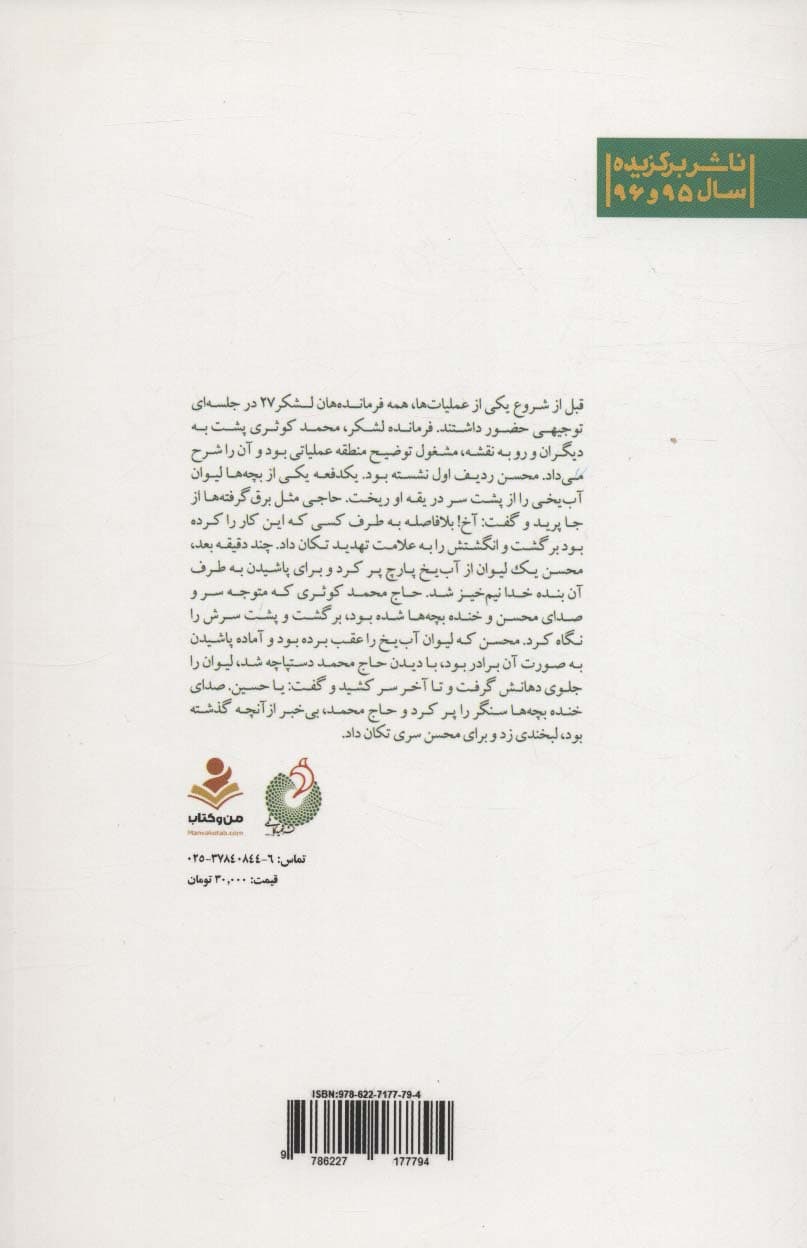 ناشر برگزیده
سال ۹۵ و ۹۶
قبل از شروع یکی از عملیات‌ها، همه فرمانده‌هان لشکر۲۷ در جلسه‌ای
توجیهی حضور داشتند. فرمانده لشکر، محمد کوثری پشت به
دیگران و رو به نقشه، مشغول توضیح منطقه عملیاتی بود و آن را شرح
می‌داد. محسن ردیف اول نشسته بود. یکدفعه یکی از بچه‌ها لیوان
آب‌یخی را از پشت سر در یقه او ریخت. حاجی مثل برق‌گرفته‌ها از
جا پرید و گفت: آخ! بلافاصله به طرف کسی که این کار را کرده
بود برگشت و انگشتش را به علامت تهدید تکان داد. چند دقیقه بعد،
محسن یک لیوان از آب‌یخ پارچ پر کرد و برای پاشیدن به طرف
آن بنده خدا نیم‌خیز شد. حاج محمد کوثری که متوجه سر و
صدای محسن و خنده بچه‌ها شده بود، برگشت و پشت سرش را
نگاه کرد. محسن که لیوان آب‌یخ را عقب برده بود و آماده پاشیدن
به صورت آن برادر بود، با دیدن حاج محمد دستپاچه شد، لیوان را
جلوی دهانش گرفت و تا آخر سر کشید و گفت: یا حسین. صدای
خنده بچه‌ها سنگر را پر کرد و حاج محمد، بی‌خبر از آنچه گذشته
بود، لبخندی زد و برای محسن سری تکان داد.
من و کتاب
Manvaketab.com
تماس: ۶-۳۷۸۴۰۸۴۴-۰۲۵
قیمت: ۳۰,۰۰۰ تومان
ISBN:978-622-7177-79-4
9 786227 177794